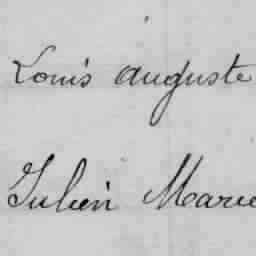 Louis auguste
Julien Marie